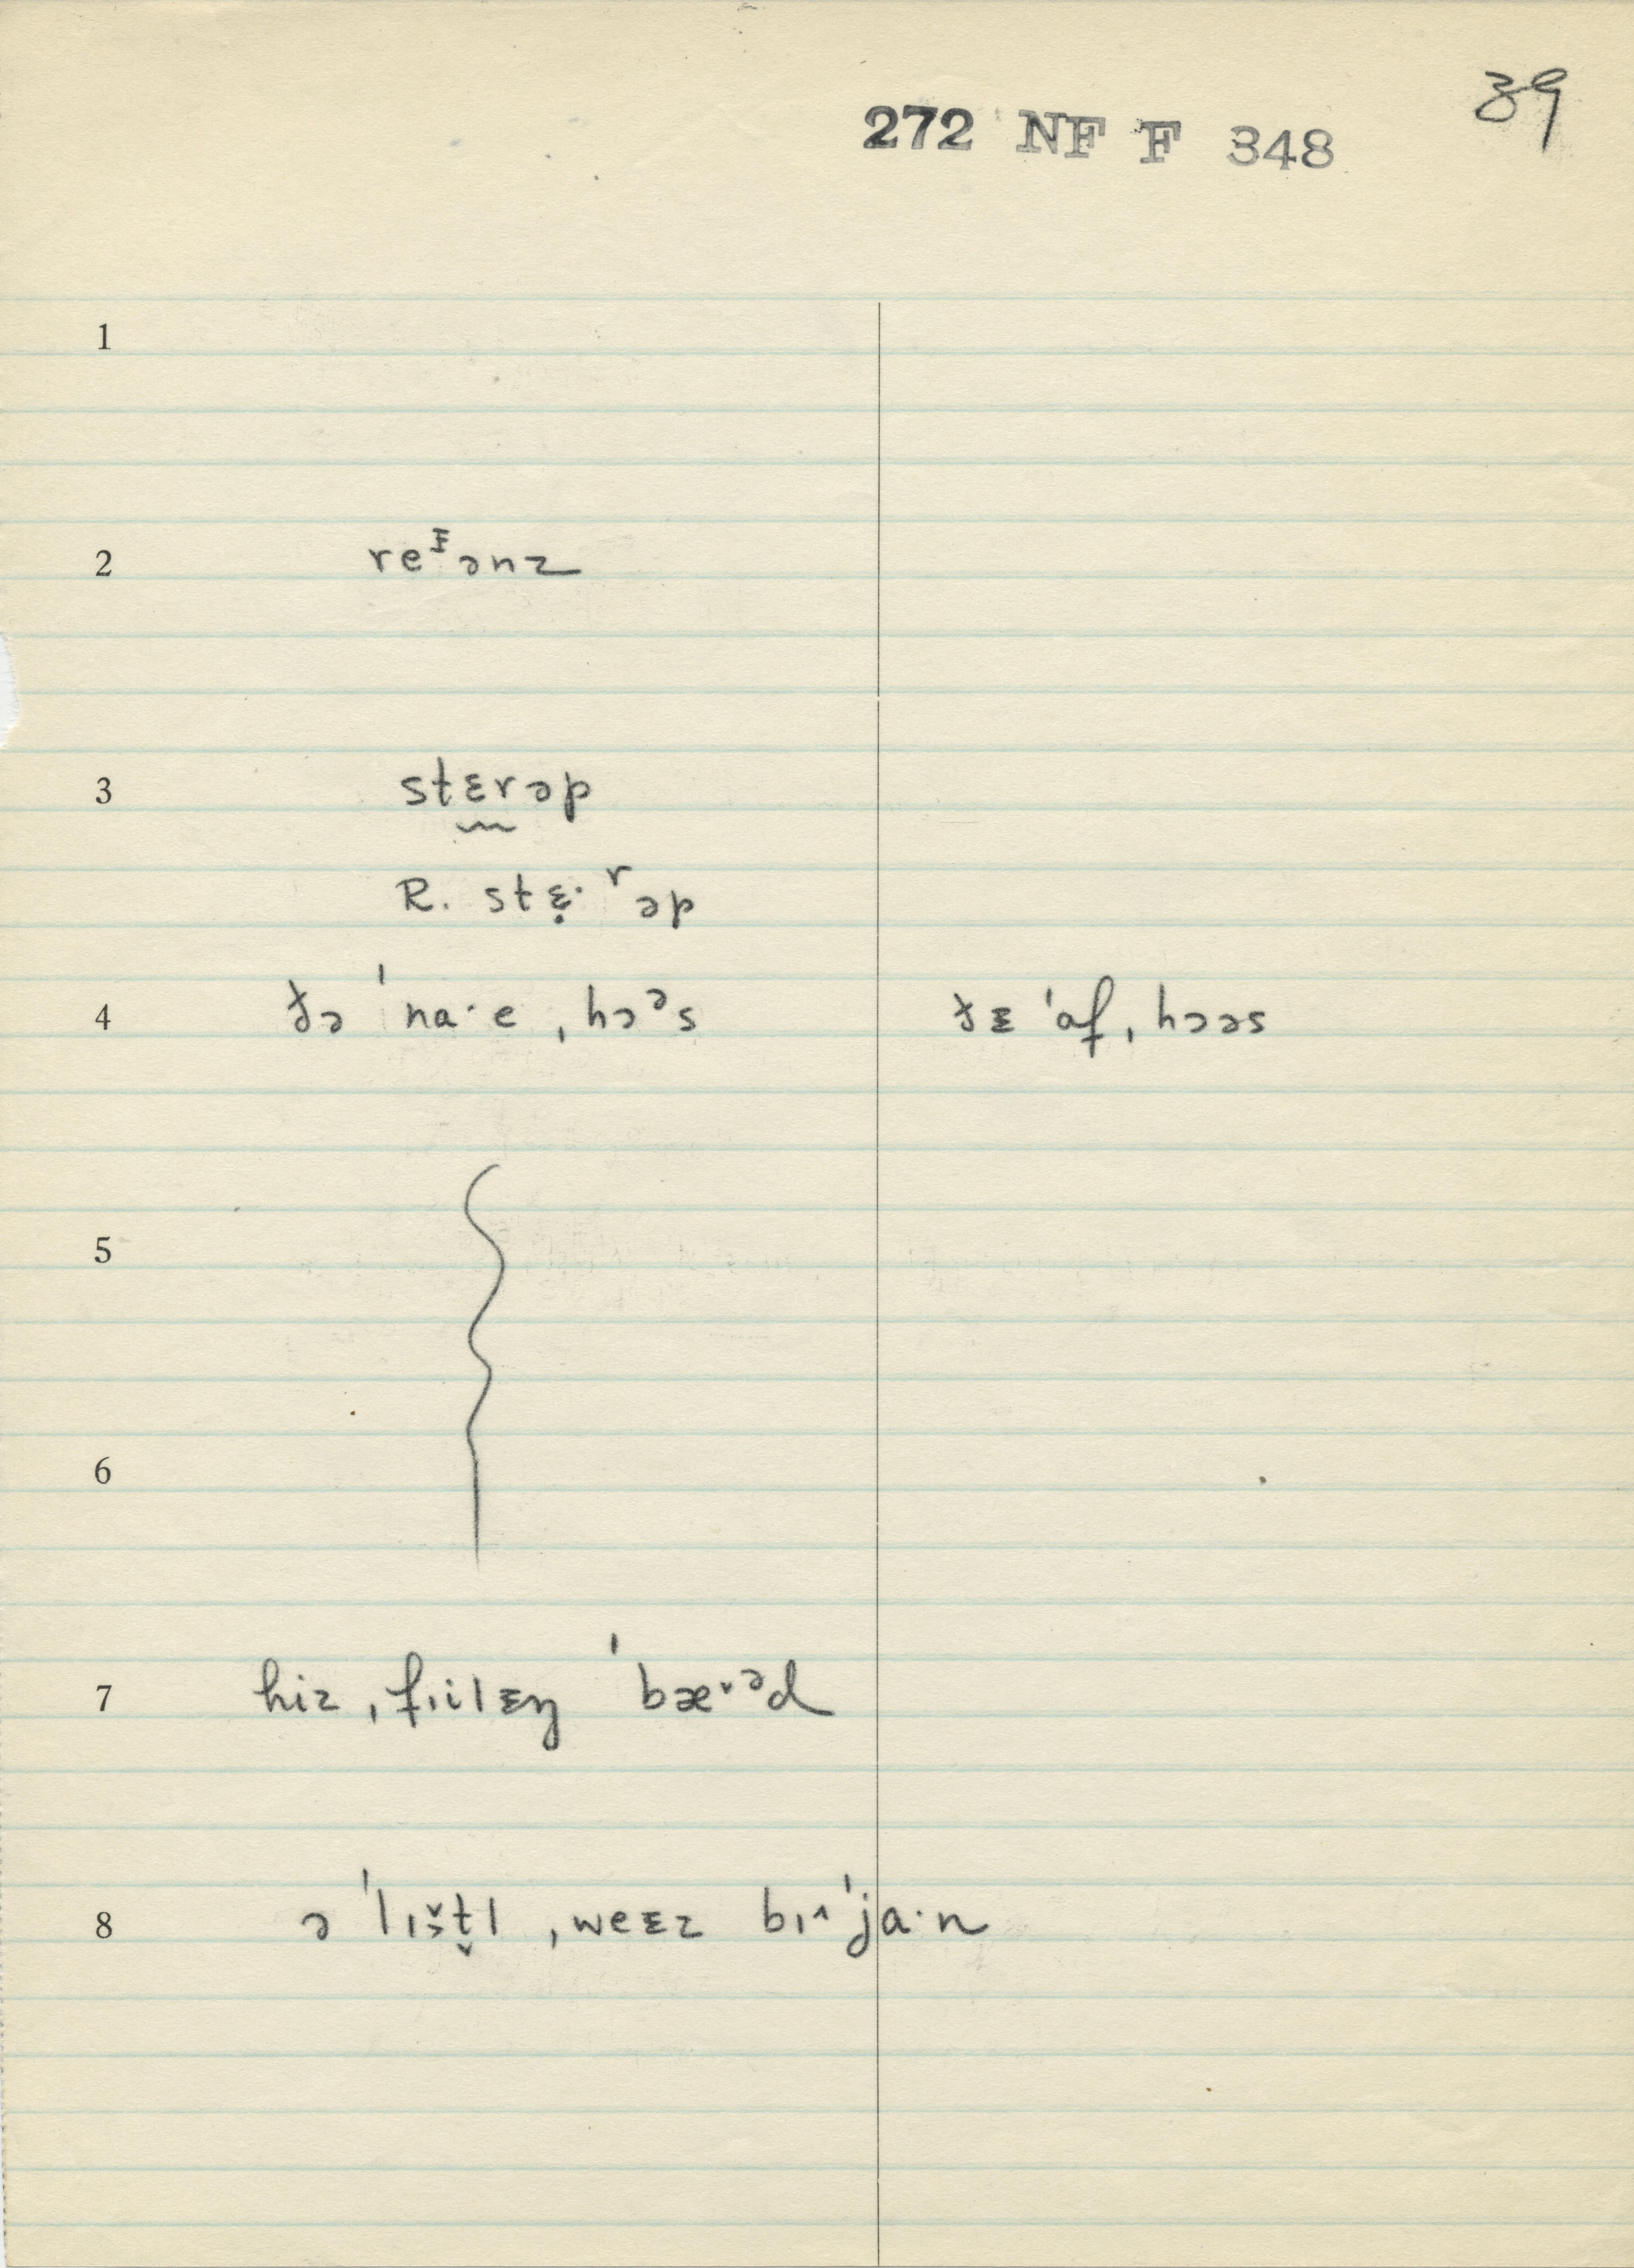 39
272 NF F 348
1
2 reᵻənz
3 stɛrəp
R. stɛ̣· ʳəp
4 ðə ˈna·e ˌhɔᵊs ðᵻ ˈɑf ˌhɔəs
5
6
7 hiz ˌfɪilᵻŋ ˈbæ˅ᵊd
8 ə ˈlɪš̬t̬l ˌweᵻz bɪ^ˈja·n